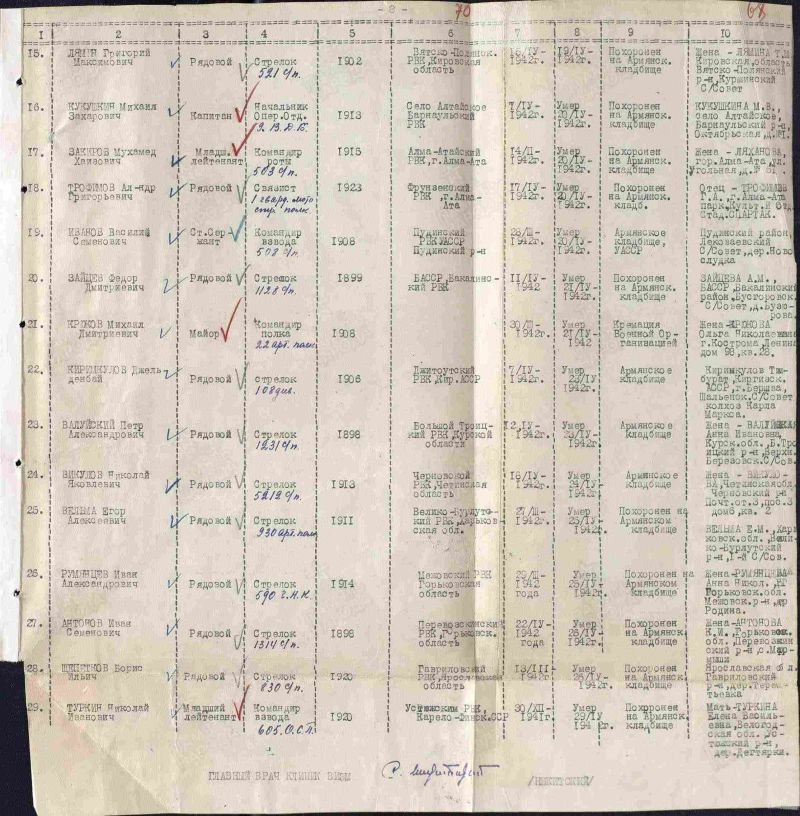 - 8 -
70
68
I 2 3 4 5 6 7 8 9 10
15. ЛЯМИН Григорий Максимович Рядовой Стрелок 521 с/п. 1902 Вятско-Полянск. РВК, Кировская область 19/IУ-1942г. Похоронен на Армянск. кладбище Жена - ЛЯМИНА Т.М. Кировская, область Вятско-Полянский р-н, С/Совет
16. КУКУШКИН Михаил Захарович Капитан Начальник Опер.Отд. 1913 Село Алтайское Барнаульский РВК 7/IУ-1942г. Умер 20/IУ-1942г. Похоронен на Армянск. кладбище КУКУШКИНА М.В., село Алтайское, Барнаульский р-н, Октябрьская,
17. ЗАКИРОВ Мухамед Младш. лейтенант Командир роты 503 с/п. 1915 Алма-Атайский РВК, г.Алма-Ата 14/П-1942г. Умер 20/IУ-1942г. Похоронен на Армянск. кладбище Жена - ЛЯХАНОВА, гор.Алма-Ата, ул. Угольная,
18. ТРОФИМОВ Ал-ндр Григорьевич Рядовой Связист 1 гвард. мото стр. полк 1923 Фрунзенский РВК, г.Алма-Ата 17/IУ-1942г. Умер 20/IУ-1942г. Похоронен на Армянск. кладб. Отец - ТРОФИМОВ Г.А., г.Алма-Ата парк.Культ.и Отд. Стад.СПАРТАК.
19. ИВАНОВ Василий Семенович Ст.Сержант Командир взвода 508 с/п. 1908 Пудинский РВК УАССР Пудинский р-н 28/Ш-1942г. Умер 20/IУ-1942г. Армянское кладбище, УАССР Пудинский район, С/Совет, дер.Новослудка
20. ЗАЙЦЕВ Федор Дмитриевич Рядовой Стрелок 1128 с/п. 1899 БАССР, Бакалинский РВК 11/IУ-1942 Умер 21/IУ-1942г. Похоронен на Армянск. кладбище ЗАЙЦЕВА А.М., БАССР, Бакалинский район,
21. КРЮКОВ Михаил Дмитриевич Майор Командир полка 22 арт. полк 1908 30/Ш-1942г. Умер 21/IУ-1942 Кремация Военной Организацией Жена-КРЮКОВА Ольга Николаевна г.Кострома, Ленина дом 98, кв.28.
22. КИРИМКУЛОВ Джельденбай Рядовой стрелок 108 див. 1906 РВК, Кир.АССР 7/IУ-1942г. Умер 23/IУ-1942г. Армянское кладбище Киримкулов Киргизск. АССР, С/Совет колхоз Карла Маркса.
23. ВАЛУЙСКИЙ Петр Александрович Рядовой Стрелок 1231 с/п. 1898 Большой Троицкий РВК, Курской области 12/IУ-1942г. Умер 23/IУ-1942г. Армянское кладбище Жена - ВАЛУЙСКАЯ Анна Ивановна, Курск.обл., Б.Троицкий р-н, Верхн. Березовск.С/Сов.
24. ВИКУЛОВ Николай Яковлевич Рядовой Стрелок 5219 с/п. 1913 Черновской РВК, Читинская область 18/IУ-1942г. Умер 24/IУ-1942г. Армянское кладбище Жена - ВИКУЛОВА, Читинская обл. Черновский рн Почт.от.3, поб.3 дом6, кв. 2
25. ВЕЛЬМА Егор Алексеевич Рядовой Стрелок 930 арт. полк 1911 Велико-Бурлутский РВК, Харьковская обл. 27/Ш-1942г. Умер 25/IУ-1942г. Похоронен на Армянском кладбище ВЕЛЬМА Е.М., Харьковск.обл., Велико-Бурлутский р-н, С/Сов.
26. РУМЯНЦЕВ Иван Александрович Рядовой Стрелок 590 1914 Межовский РВК Горьковская область 29/Ш-1942 года Умер 25/IУ-1942г. Похоронен на Армянском кладбище Жена-РУМЯНЦЕВА Анна Горьковск.обл. Межовск.р-н, Родина.
27. АНТОНОВ Иван Семенович Рядовой Стрелок 1314 с/п. 1898 Перевозкинский РВК, Горьковск. область 22/IУ-1942 года Умер 26/IУ-1942г. Похоронен на Армянск. кладбище Жена-АНТОНОВА К.И. Горьковск. обл.
28. ЩЕПЕТКОВ Борис Ильич Рядовой Стрелок 830 с/п. 1920 Гавриловский РВК, Ярославская область 13/III-1942г. Умер 26/IУ-1942г. Похоронен на Армянск. кладбище Ярославская обл. Гавриловский р-н,
29. ТУРКИН Николай Иванович Младший лейтенант Командир взвода 605.О.С.П. 1920 Устюжским РВК, Карело-Финск.ССР 30/ХП-1941г. Умер 29/IУ 1942г. Похоронен на Армянск. кладбище Мать-ТУРКИНА Елена Васильевна, Вологодская обл. Устюжский р-н, дер.Дегтярка.
ГЛАВНЫЙ ВРАЧ КЛИНИК ВММА /НИКИТСКИЙ/